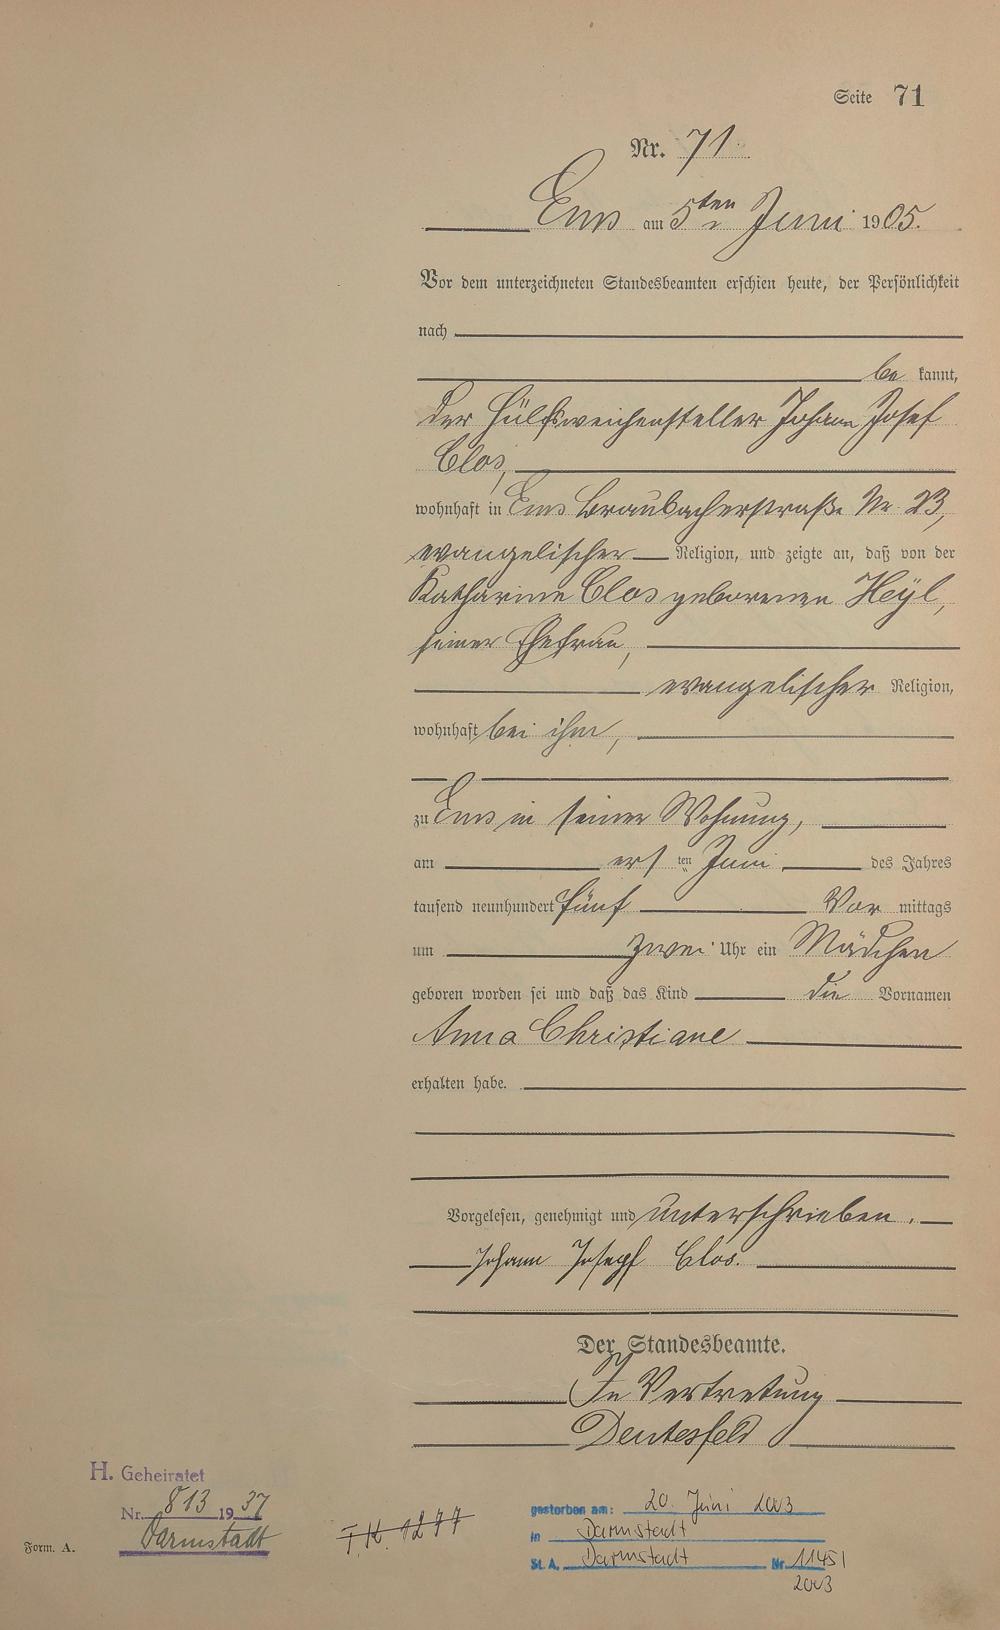 Seite 71
Nr. 71
Ems am 5ten Juni 1905.
Vor dem unterzeichneten Standesbeamten erschien heute, der Persönlichkeit
nach
be kannt,
der Hülfsweichensteller Johann Josef
Clos,
wohnhaft in Ems Braubacherstraße Nr. 23,
evangelischer Religion, und zeigte an, daß von der
Katharine Clos geborenen Heyl,
seiner Ehefrau,
evangelischer Religion,
wohnhaft bei ihm,
zu Ems in seiner Wohnung,
am ersten Juni des Jahres
tausend neunhundert fünf Vor mittags
um zwei Uhr ein Mädchen
geboren worden sei und daß das Kind die Vornamen
Anna Christiane
erhalten habe.
Vorgelesen, genehmigt und unterschrieben.
Johann Josepf Clos.
Der Standesbeamte.
In Vertretung
H. Geheiratet
Nr. 813 1937
Darmstadt
Form. A.
gestorben am: 20. Juni 2003
in Darmstadt
St. A. Darmstadt Nr. 1145/
2003